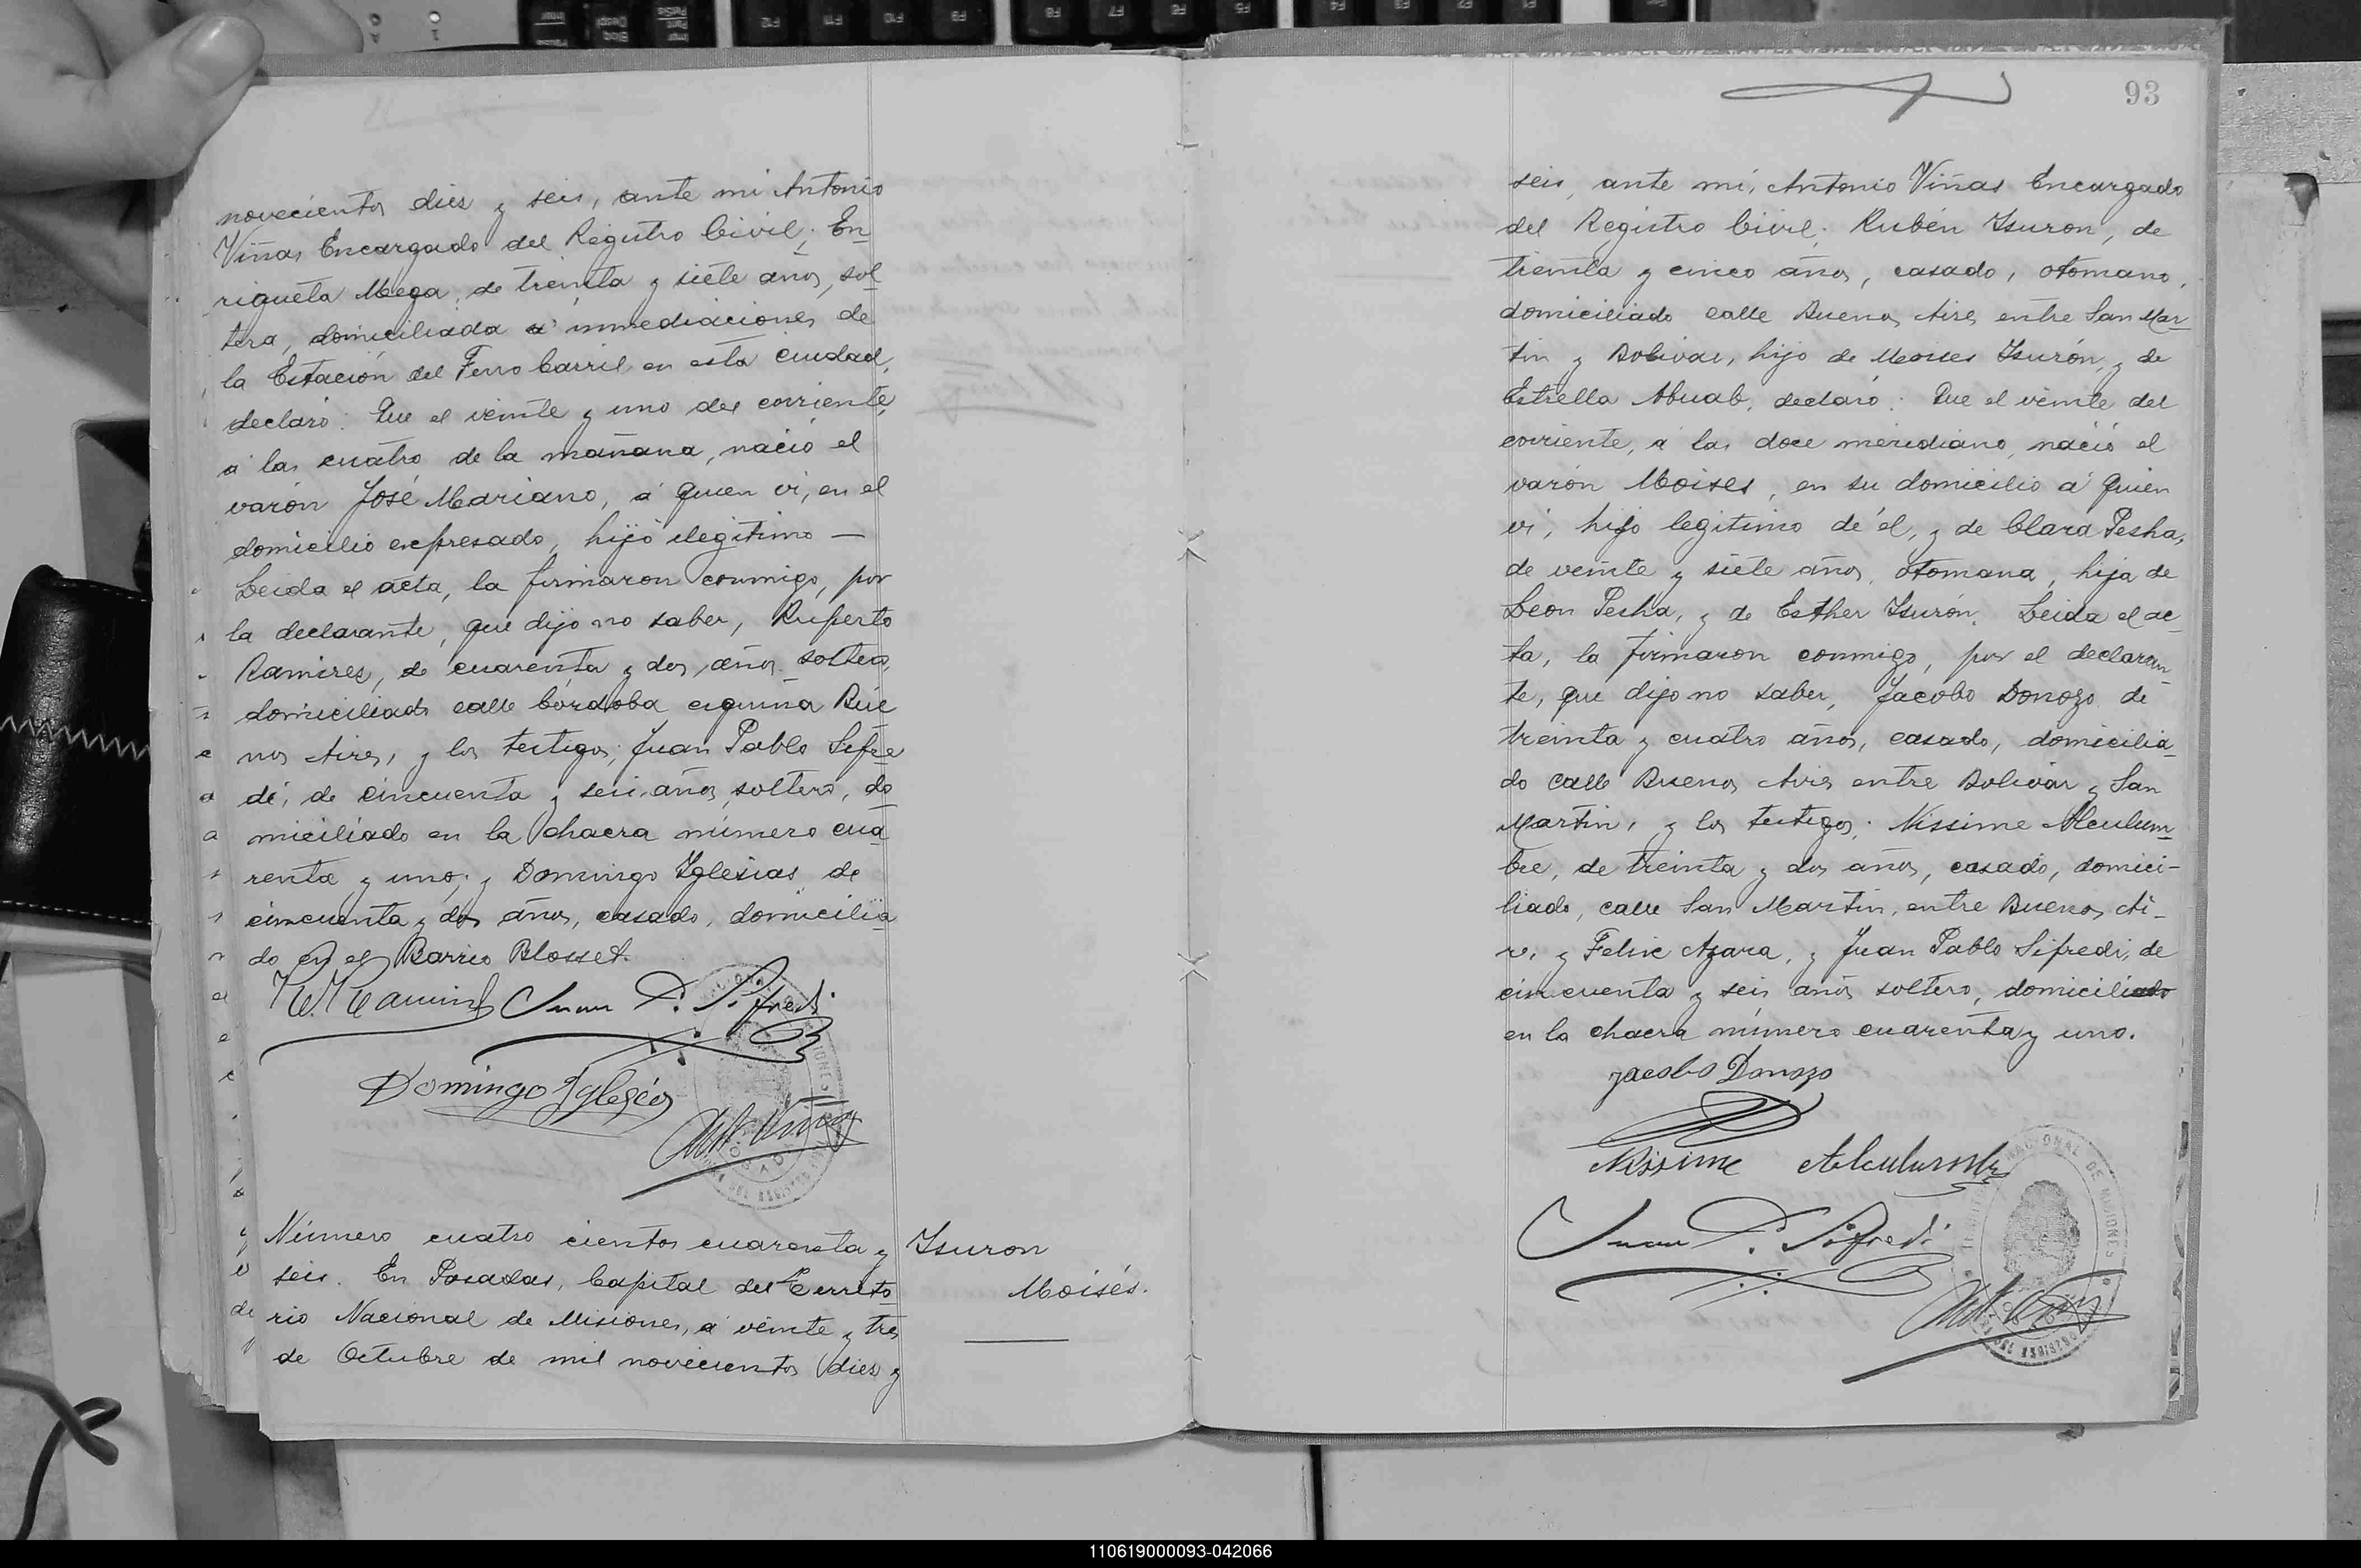 novecientos dies y seis, ante mi Antonio
Viñas Encargado del Registro Civil; En
riqueta Mega, de treinta y siete años, sol
tera, domiciliada a inmediaciones de
la Estación del Ferro Carril en esta ciudad,
declaró: Que el veinte y uno del corriente,
a las cuatro de la mañana, nació el
varón José Mariano, á quien vi, en el
domicilio expresado, hijo ilegitimo —
Leida el acta, la firmaron conmigo, por
la declarante, que dijo no saber, Ruperto
Ramires, de cuarenta y dos años soltero,
domiciliado calle Córdoba esquina Bue
nos Aires, y los testigos; Juan Pablo Sifre
di, de cincuenta y seis años, soltero, do
miciliado en la chacra número cua
renta y uno; y Domingo Iglesias de
cincuenta y dos años, casado, domicilia
do en el Barrio Blosset.
Juan P. Sifredi
Domingo Iglesias
Ant. Viñas
Número cuatro cientos cuarenta y
seis. En Posadas, Capital del Territo
rio Nacional de Misiones, a veinte y tres
de Octubre de mil novecientos dies y
Isuron
Moisés.
93
seis, ante mi, Antonio Viñas Encargado
del Registro Civil; Rubén Isuron, de
treinta y cinco años, casado, otomano,
domiciliado calle Buenos Aires entre San Mar
tin y Bolivar, hijo de Moises Isurón, y de
Estrella Abuab, declaró: Que el veinte del
corriente, a las doce meridiano, nació el
varón Moises, en su domicilio a quien
vi, hijo legitimo de él, y de Clara Pesha,
de veinte y siete años, otomana, hija de
Leon Pesha, y de Esther Isurón. Leida el ac
ta, la firmaron conmigo, por el declaran
te, que dijo no saber, Jacobo Donozo de
treinta y cuatro años, casado, domicilia
do calle Buenos Aires entre Bolivar y San
Martin, y los testigos; Nissime Alculum
bre, de treinta y dos años, casado, domici-
liado, calle San Martin, entre Buenos Ai-
res y Felix Azara, y Juan Pablo Sifredi, de
cincuenta y seis años soltero, domiciliado
en la chacra número cuarenta y uno.
Jacobo Donozo
Nissime Alculumbre
Juan P. Sifredi
Ant. Viñas
110619000093-042066